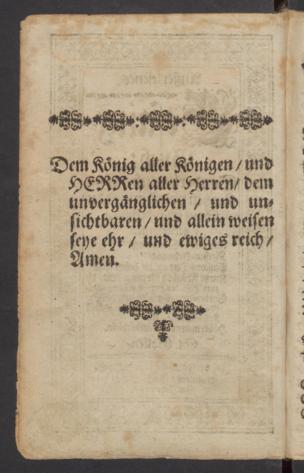 Dem König aller Königen / und
HERRen aller Herren / dem
unvergänglichen / und un-
sichtbaren / und allein weisen
seye ehr / und ewiges reich /
Amen.